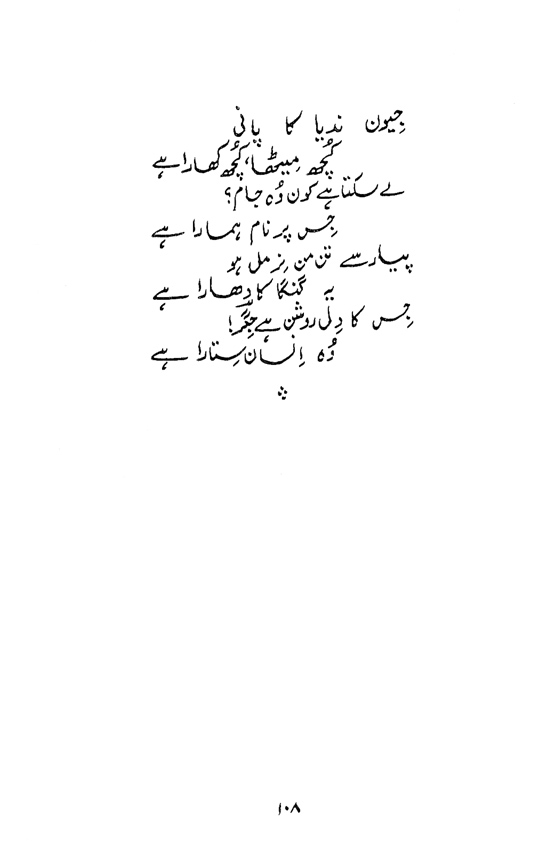 جِیون ندیا کا پانی
کُچھ مِیٹھا، کُچھ کھارا ہے
لے سکتا ہے کون وُہ جام؟
جِس پر نام ہمارا ہے
پیار سے تن من نِرمل ہو
یہ گنگا کا دِھارا ہے
جِس کا دِل روشن ہے جِگرؔ!
وُہ اِنسان سِتارا ہے
۱۰۸